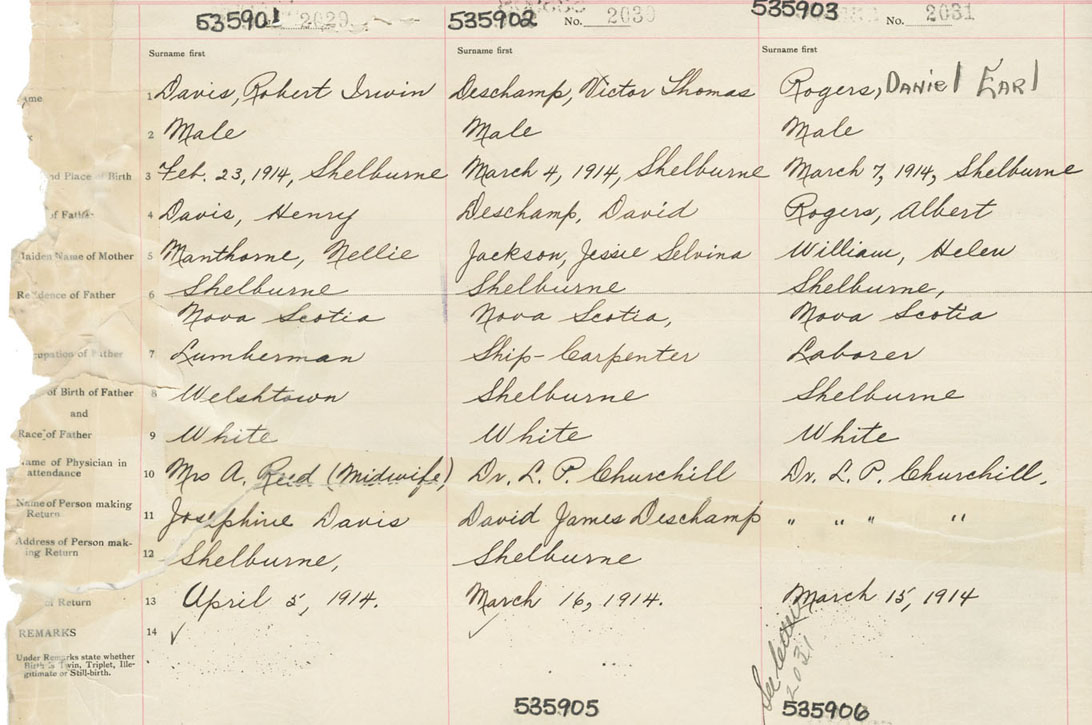 535901 2029 535902 No. 2030 535903 No. 2031
Surname first Surname first Surname first
ame 1 Davis, Robert Irwin Deschamp, Victor Thomas Rogers, Daniel Earl
x 2 Male Male Male
nd Place of Birth 3 Feb. 23, 1914, Shelburne March 4, 1914, Shelburne March 7, 1914, Shelburne
of Father 4 Davis, Henry Deschamp, David Rogers, Albert
Maiden Name of Mother 5 Manthorne, Nellie Jackson, Jessie Selvina William, Helen
Residence of Father 6 Shelburne Shelburne Shelburne,
Nova Scotia Nova Scotia, Nova Scotia
cupation of Father 7 Lumberman Ship-Carpenter Laborer
of Birth of Father 8 Welshtown Shelburne Shelburne
and
Race of Father 9 White White White
Name of Physician in
attendance 10 Mrs A. Reed (Midwife) Dr. L. P. Churchill Dr. L. P. Churchill.
Name of Person making
Return 11 Josephine Davis David James Deschamp " " " "
Address of Person mak-
ing Return 12 Shelburne, Shelburne
of Return 13 April 5, 1914. March 16, 1914. March 15, 1914
REMARKS 14 ✓ ✓
Under Remarks state whether
Birth is Twin, Triplet, Ille-
gitimate or Still-birth.
See letter
2031
535905 535906